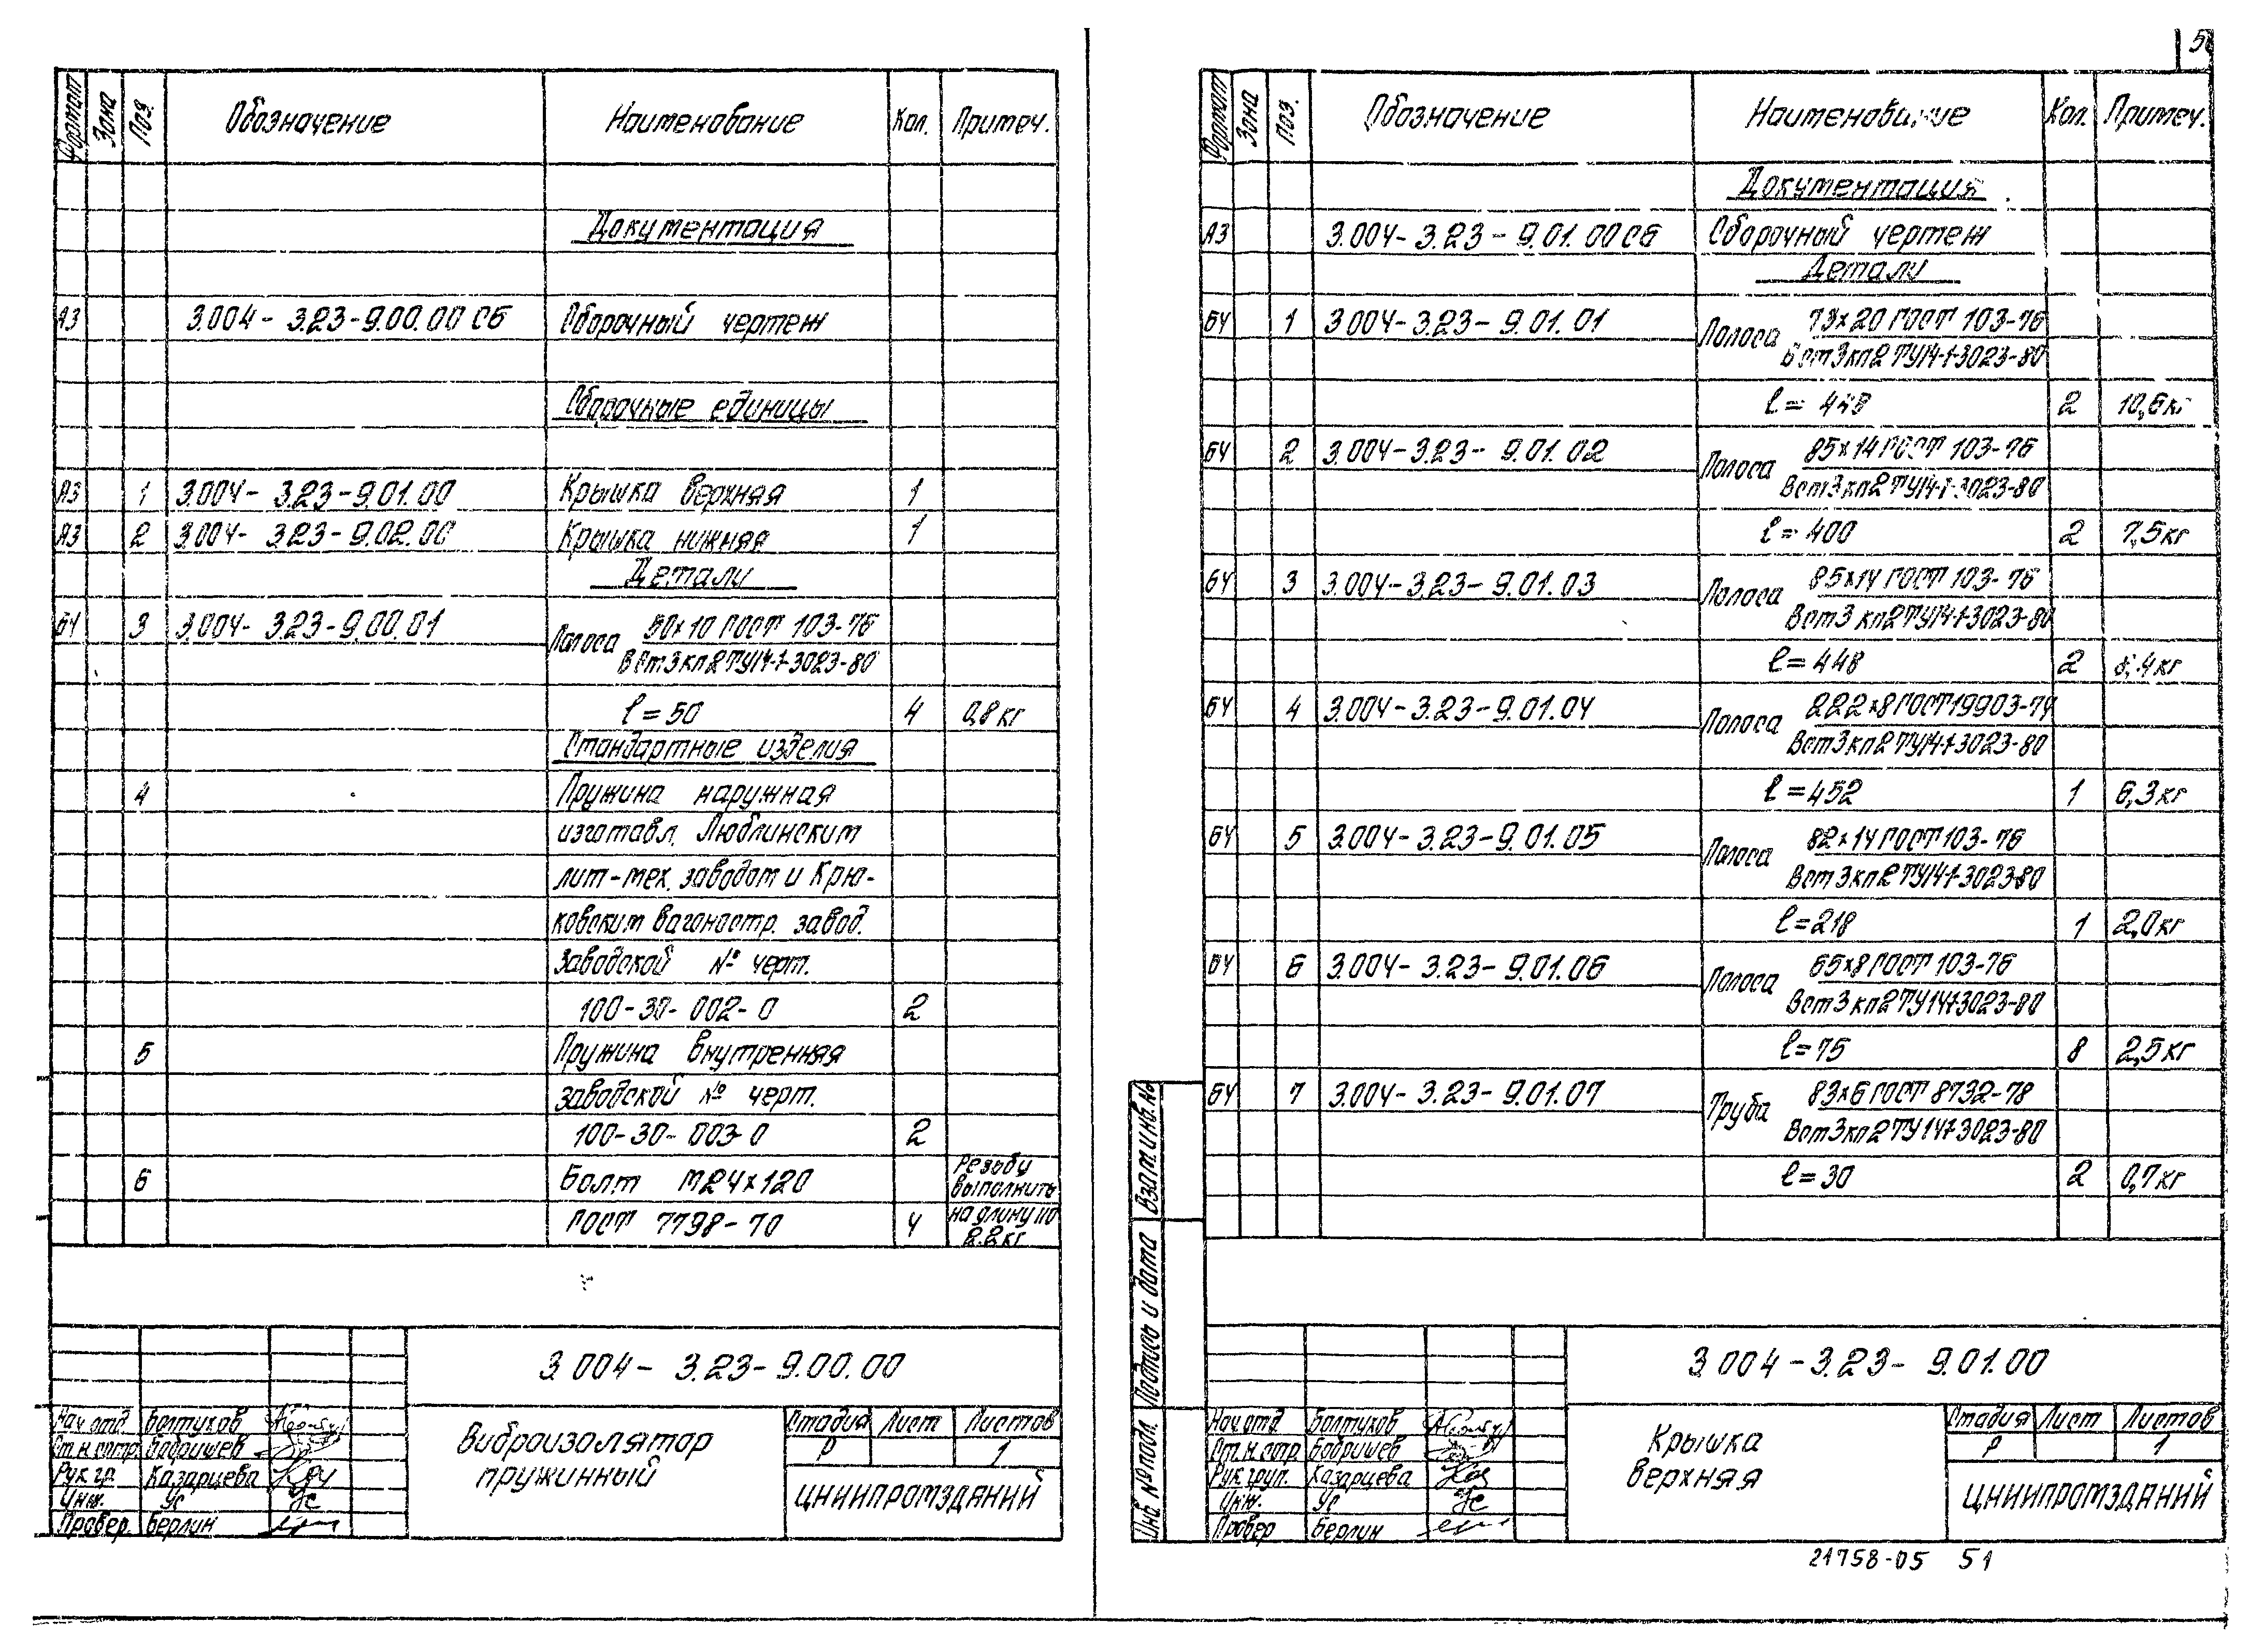 Формат Зона Поз. Обозначение Наименование Кол. Примеч.
Документация
А3 3.004-3.23-9.00.00 СБ Сборочный чертеж
Сборочные единицы
А3 1 3.004-3.23-9.01.00 Крышка верхняя 1
А3 2 3.004-3.23-9.02.00 Крышка нижняя 1
Детали
БЧ 3 3.004-3.23-9.00.01 Полоса 50×10 ГОСТ 103-76
ВСт3кп2 ТУ14-1-3023-80
ℓ=50 4 0,8кг
Стандартные изделия
4 Пружина наружная
изготавл. Люблинским
лит-мех. заводом и Крю-
ковским вагоностр. завод.
Заводской № черт.
100-30-002-0 2
5 Пружина внутренняя
заводской № черт.
100-30-003-0 2
6 Болт М24×120 Резьбу
выполнить
ГОСТ 7798-70 4 на длину 110
2.2кг
3.004-3.23-9.00.00
Нач.отд. Болтухов
Ст.н.сотр. Бабришев
Рук.гр. Казарцева
Инж. Ус
Провер. Берлин
Виброизолятор
пружинный
Стадия Лист Листов
Р 1
ЦНИИПРОМЗДАНИЙ
5
Формат Зона Поз. Обозначение Наименование Кол. Примеч.
Документация
А3 3.004-3.23-9.01.00 СБ Сборочный чертеж
Детали
БЧ 1 3.004-3.23-9.01.01 Полоса 73×20 ГОСТ 103-76
ВСт3кп2 ТУ14-1-3023-80
ℓ=448 2 10,6кг
БЧ 2 3.004-3.23-9.01.02 Полоса 85×14 ГОСТ 103-76
ВСт3кп2 ТУ14-1-3023-80
ℓ=400 2 7,5кг
БЧ 3 3.004-3.23-9.01.03 Полоса 85×14 ГОСТ 103-76
ВСт3кп2 ТУ14-1-3023-80
ℓ=448 2 8,4кг
БЧ 4 3.004-3.23-9.01.04 Полоса 222×8 ГОСТ 19903-74
ВСт3кп2 ТУ14-1-3023-80
ℓ=452 1 6,3кг
БЧ 5 3.004-3.23-9.01.05 Полоса 82×14 ГОСТ 103-76
ВСт3кп2 ТУ14-1-3023-80
ℓ=218 1 2,0кг
БЧ 6 3.004-3.23-9.01.06 Полоса 65×8 ГОСТ 103-76
ВСт3кп2 ТУ14-1-3023-80
ℓ=75 8 2,5кг
БЧ 7 3.004-3.23-9.01.07 Труба 83×6 ГОСТ 8732-78
ВСт3кп2 ТУ14-1-3023-80
ℓ=30 2 0,7кг
Инв. № подл. Подпись и дата Взам.инв.№
3.004-3.23-9.01.00
Нач.отд. Болтухов
Ст.н.сотр. Бабришев
Рук.груп. Казарцева
Инж. Ус
Провер Берлин
Крышка
верхняя
Стадия Лист Листов
Р 1
ЦНИИПРОМЗДАНИЙ
21758-05 51